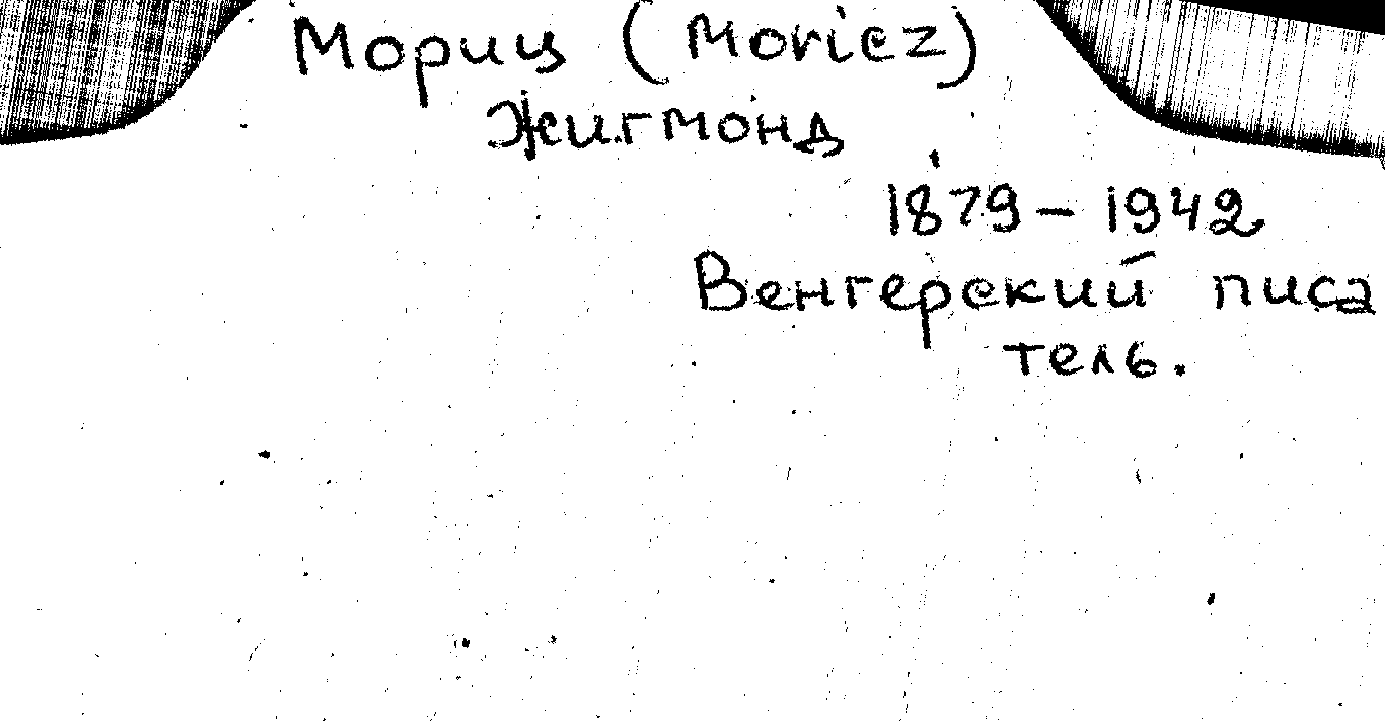 Мориц (Moricz)
Жигмонд
1879 – 1942
Венгерский писа
тель.